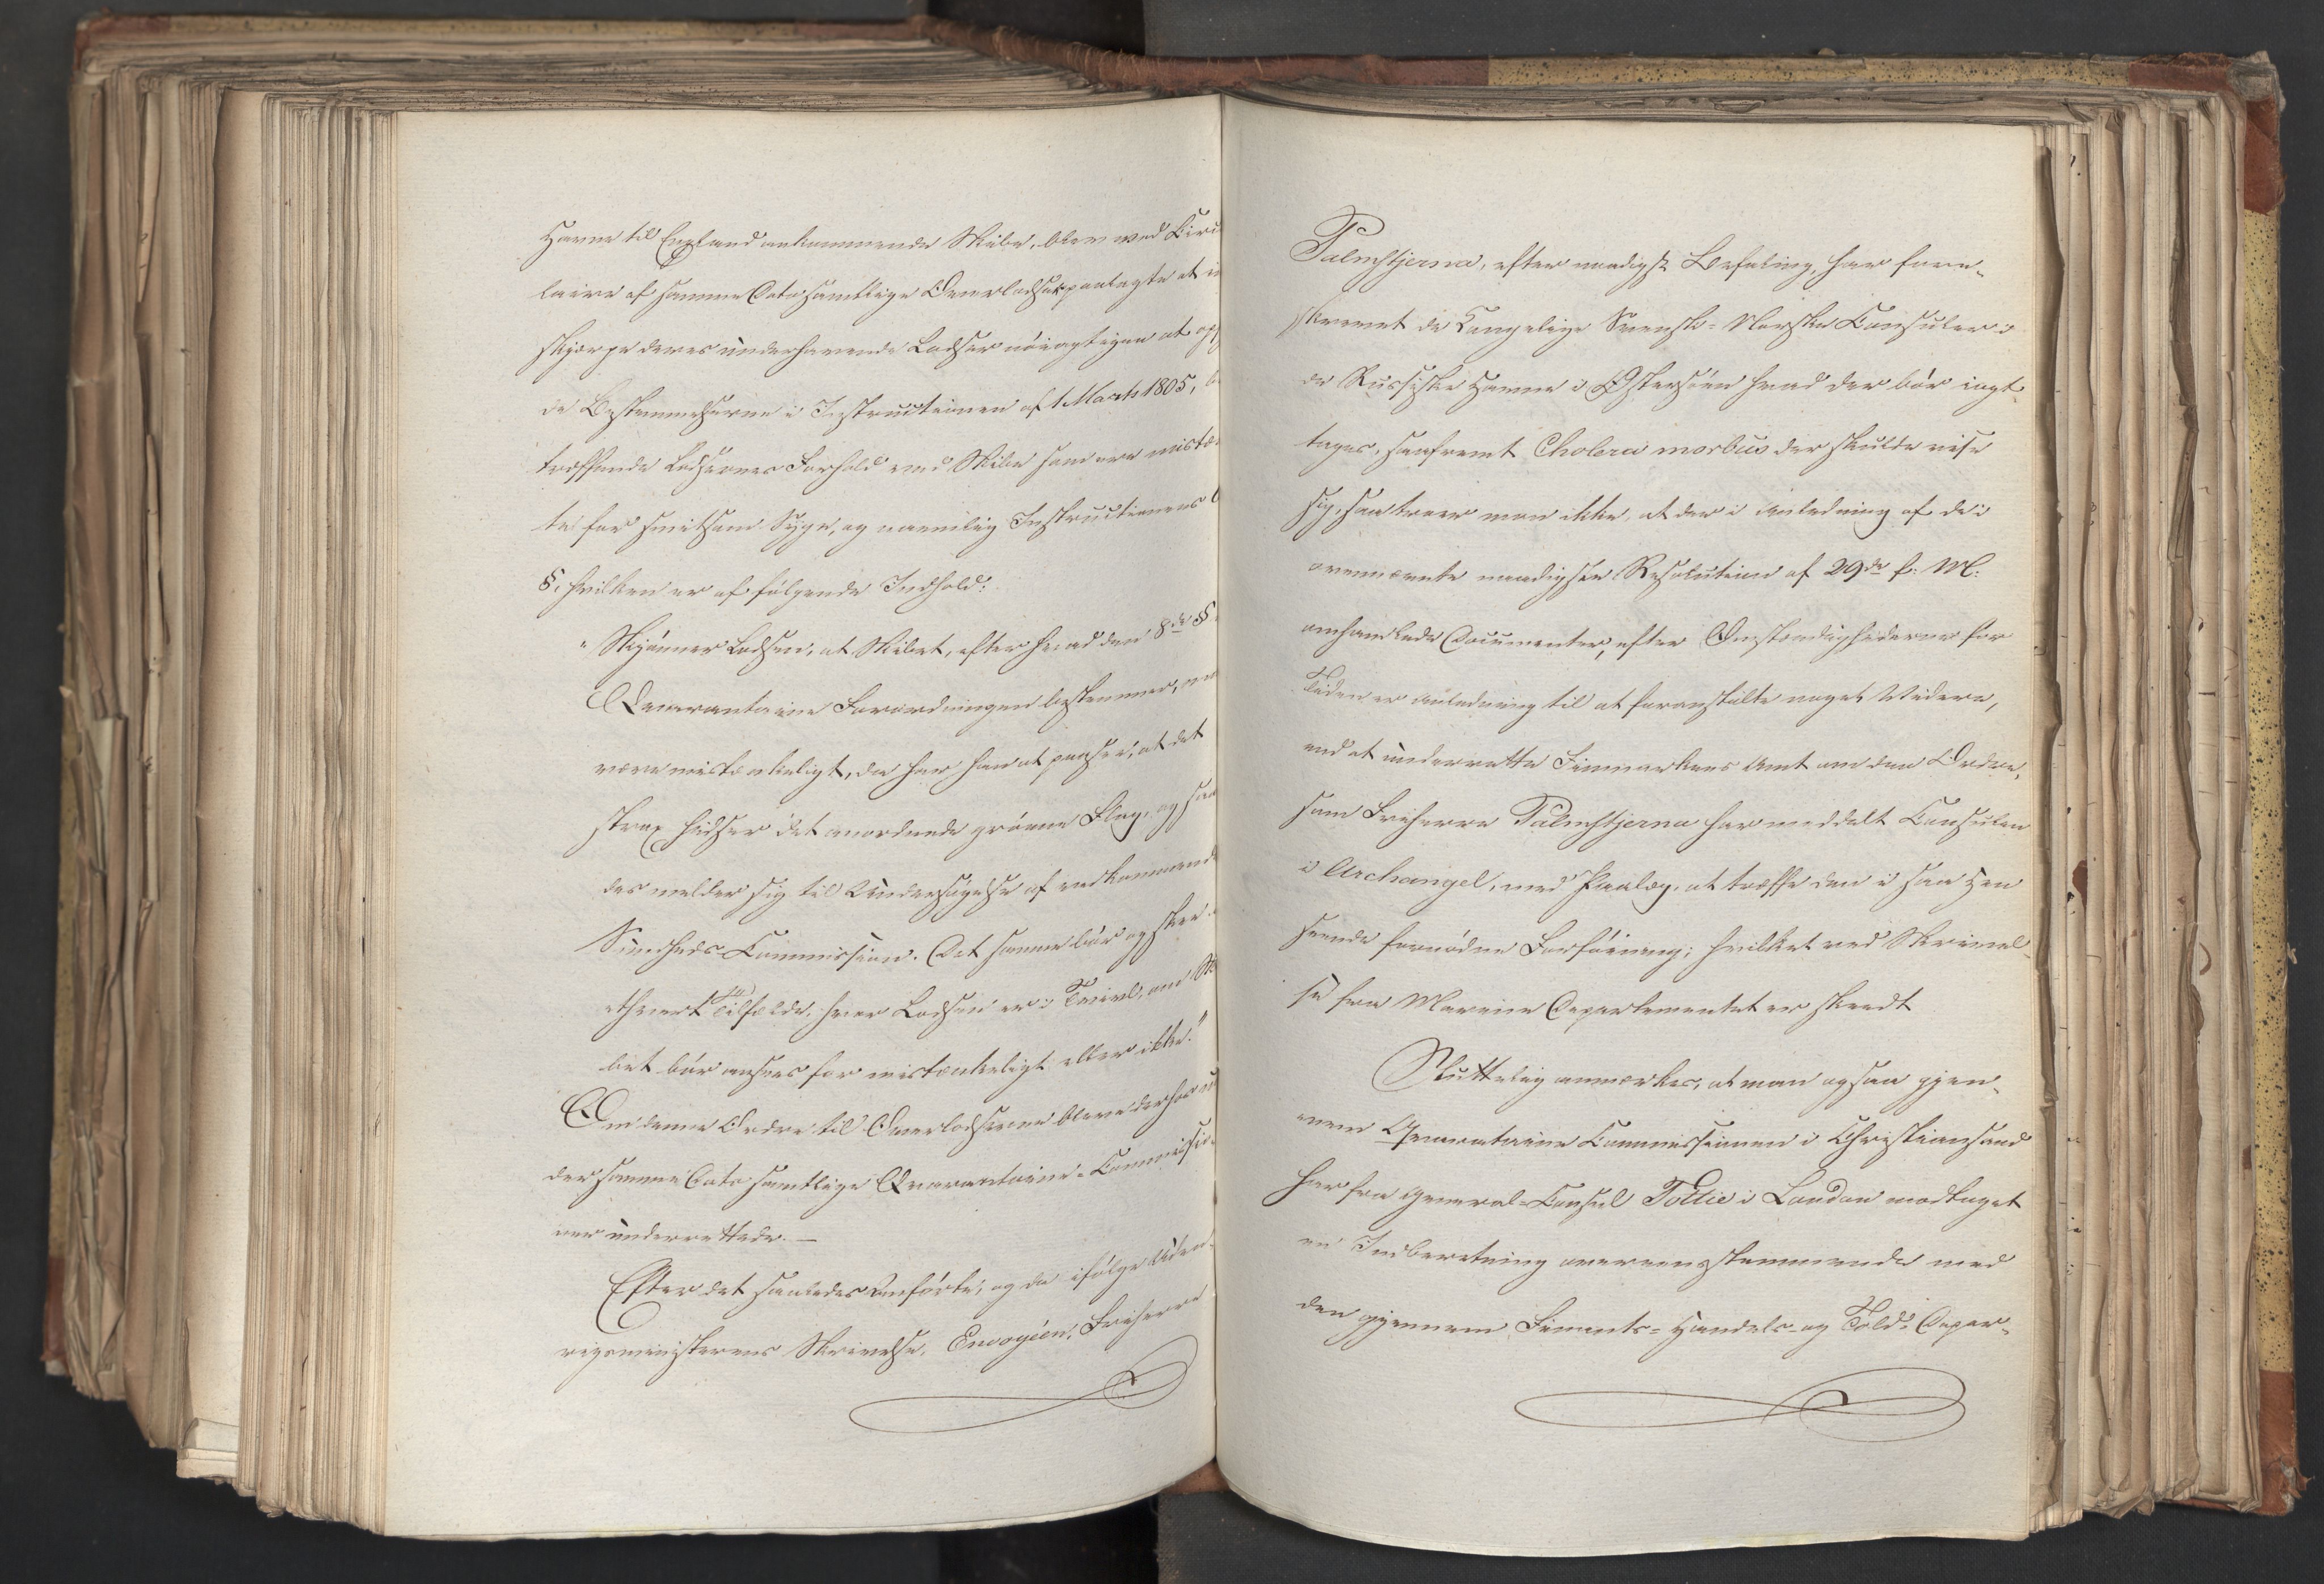 Havne til England ankommende Skibe, blev ved Circu
laire af samme Dato samtlige Overlodser paalagte at i
skjærpe deres underhavende Lodser nöiagtigen at op
de Bestemmelserne i Instructionen af 1 Marts 1805, be
træffende Lodsernes Forhold med Skibe som ere mistæ
te for smitsom Syge, og navnlig Instructionens
§, hvilken er af fölgende Indhold:
"Skjönner Lodsen, at Skibet, efter hvad den 8de §
Qvarantaine Forordningen bestemmer, maa
være mistænkeligt, da har han at paasee, at det
strax hidser det anordnede grönne Flag, og saa
des melder sig til Undersögelse af vedkommende
Sundheds-Commission. Det samme bör og skee i
ethvert Tilfælde, hvor Lodsen er i Tvivl, om Ski
bet bör ansees for mistænkeligt eller ikke."
Om denne Ordre til Overlodserne bleve derhos un
der samme Dato samtlige Qvarantaine-Commissio
ner underrettede. —
Efter det saaledes Anförte, og da ifölge Uden-
rigsministerens Skrivelse, Envoyéen, Friherre
Palmstjerna, efter naadigst Befaling, har fore-
skrevet de Kongelige Svensk-Norske Consuler i
de Russiske Havne i Östersöen hvad der bör iagt-
tages, saafremt Cholera morbus der skulde vise
sig, saa troer man ikke, at der i Anledning af de i
ovennævnte naadigste Resolution af 29de f: M:
omhandlede Documenter, efter Omstændighederne for
Tiden er Anledning til at foranstalte noget Videre,
end at underrette Finmarkens Amt om den Ordre,
som Friherre Palmstjerna har meddelt Consulen
i Archangel, med Paalæg, at træffe den i saa Hen
seende fornödne Forföining; hvilket ved Skrivel-
se fra Marine Departementet er skeedt
Sluttelig anmærkes, at man ogsaa gjen-
nem Qvarantaine Commissionen i Christiansand
har fra General-Consul Tottie i London modtaget
en Indberetning overeensstemmende med
den gjennem Finants- Handels- og Told-Depar-